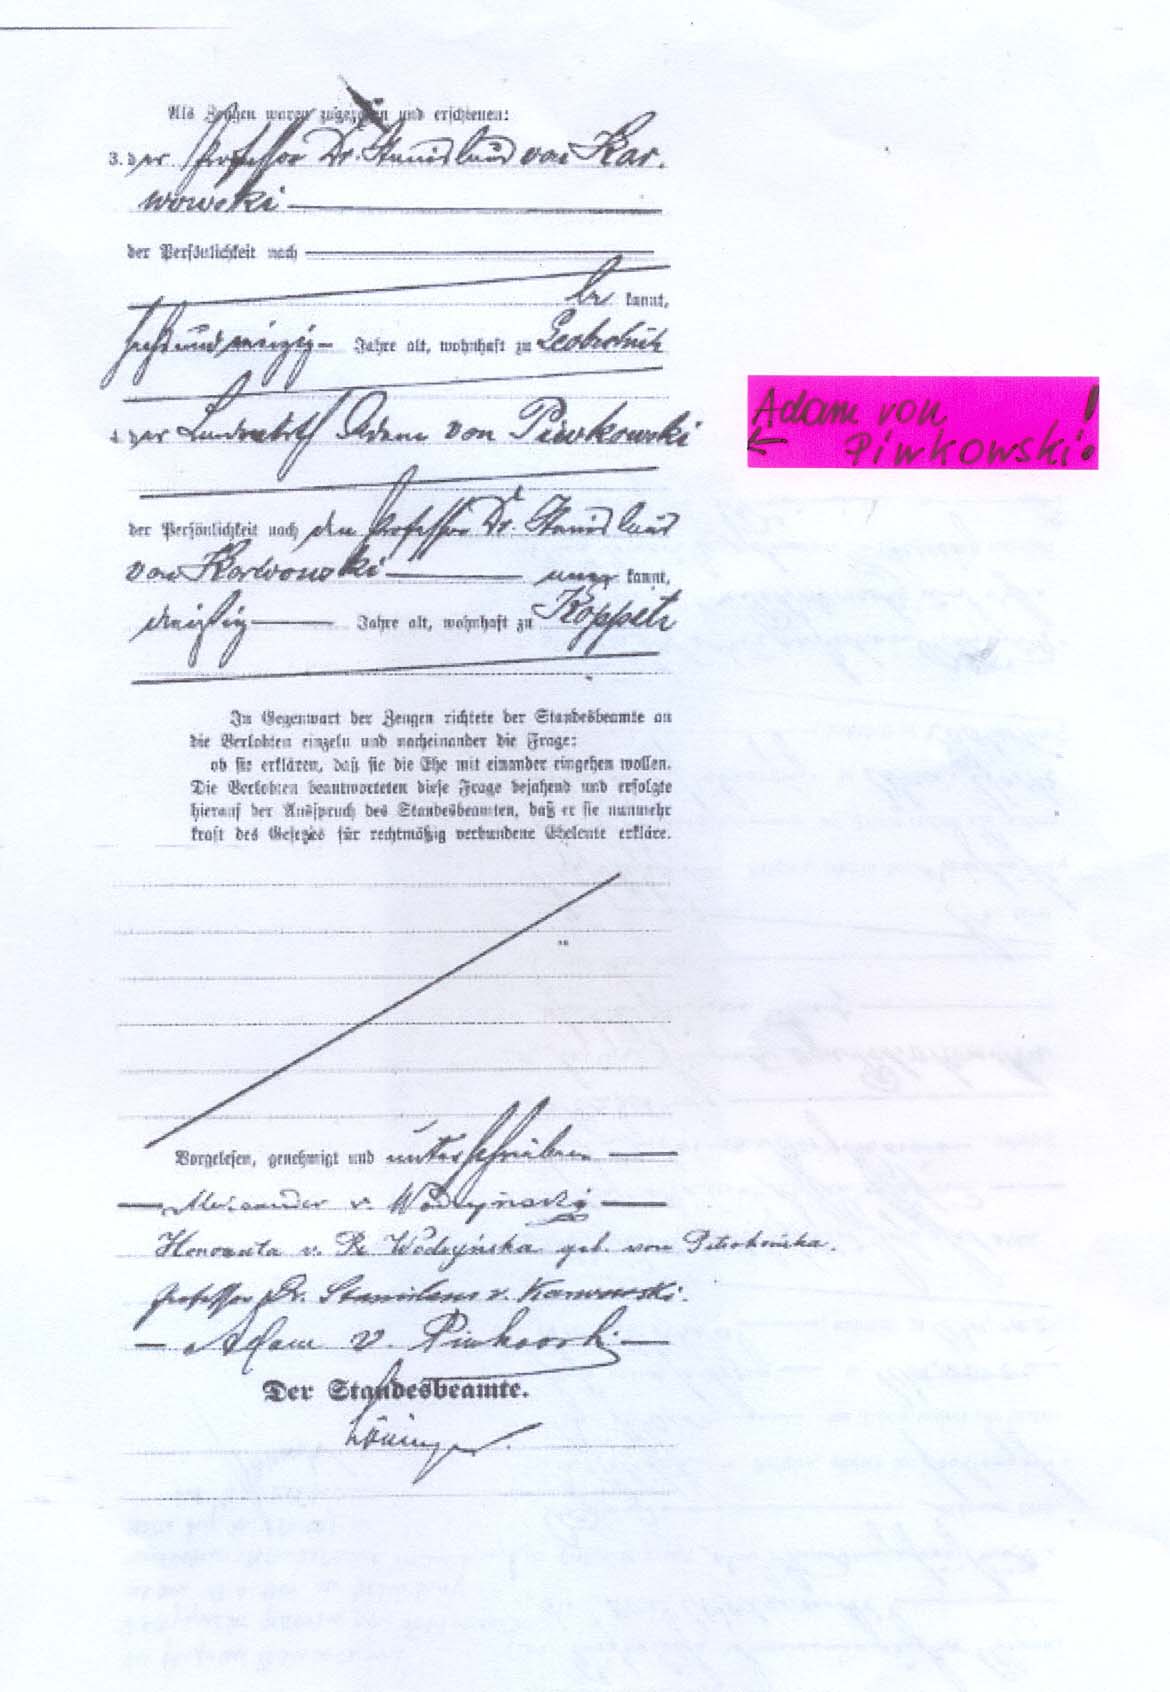 Als Zeugen waren zugezogen und erschienen:
3. der Professor Dr. Stanislaus von Kar-
wowski
der Persönlichkeit nach
be kannt,
sechsundvierzig Jahre alt, wohnhaft zu Leobschütz
4. der Landwirth Adam von Piwkowski
der Persönlichkeit nach den Professor Dr. Stanislaus
von Karwowski kannt,
dreißig Jahre alt, wohnhaft zu Koppitz
Adam von !
← Piwkowski
In Gegenwart der Zeugen richtete der Standesbeamte an
die Verlobten einzeln und nacheinander die Frage:
ob sie erklären, daß sie die Ehe mit einander eingehen wollen.
Die Verlobten beantworteten diese Frage bejahend und erfolgte
hierauf der Ausspruch des Standesbeamten, daß er sie nunmehr
kraft des Gesetzes für rechtmäßig verbundene Eheleute erkläre.
Vorgelesen, genehmigt und unterschrieben
Alexander v. Wodzyński
Honorata v. Wodzyńska geb. von
Professor Dr. Stanislaus v. Karwowski.
Adam v. Piwkowski
Der Standesbeamte.